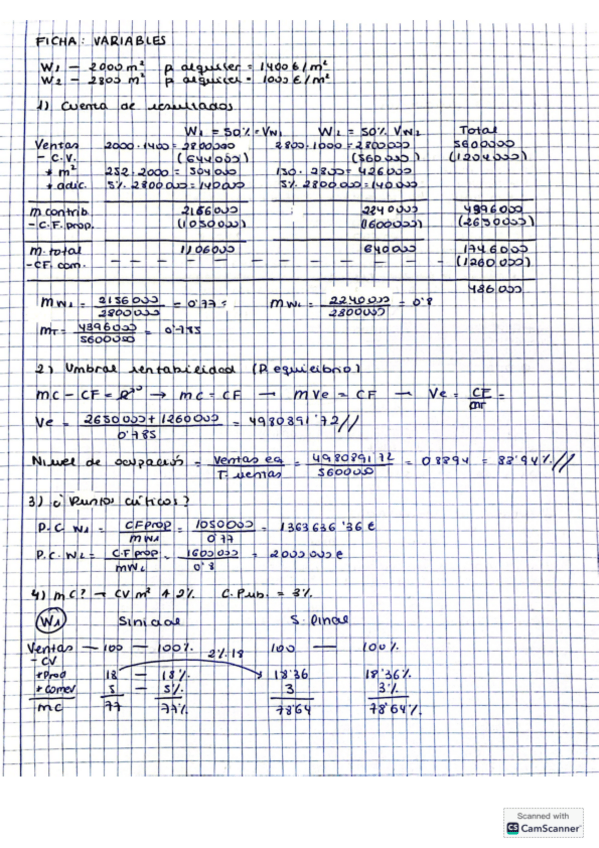 FICHA: VARIABLES
W1 - 2000 m² p alquiler = 1400 €/m²
W2 - 2800 m² p alquiler = 1000 €/m²
1) Cuenta de resultados
W1 = 50% = VW1 W2 = 50% VW2 Total
Ventas 2000·1400 = 2800000 2800·1000 = 2800000 5600000
- C.V. (644000) (560000) (1204000)
* m² 252·2000 = 504000 150·2800 = 420000
* adic. 5% 2800000 = 140000 5% 2800000 = 140000
m contrib 2156000 2240000 4396000
- C.F. prop. (1050000) (1600000) (2650000)
m. total 1106000 640000 1746000
- CF. com. - - - - - - - - - - - (1260000)
486000
mW1 = 2156000 / 2800000 = 0'77 mW2 = 2240000 / 2800000 = 0'8
mT = 4396000 / 5600000 = 0'785
2) Umbral rentabilidad (P. equilibrio)
mC - CF = → mC = CF → mVe = CF → Ve = CF / mT =
Ve = 2650000 + 1260000 / 0'785 = 4980891'72 //
Nivel de ocupación = Ventas eq / T. ventas = 4980891'72 / 5600000 = 0'8894 = 88'94% //
3) ¿Puntos críticos?
P.C W1 = CF prop / mW1 = 1050000 / 0'77 = 1363636'36 €
P.C. W2 = C.F prop / mW2 = 1600000 / 0'8 = 2000000 €
4) mC? → CV m² ↑ 2% C. Pub. = 3%
W1 S inicial S. final
Ventas — 100 — 100% 100 — 100%
- CV 2%·18
* Prod 18 - 18% 18'36 18'36%
* Comer 5 - 5% 3 3%
mC 77 77% 78'64 78'64%
Scanned with
CS CamScanner